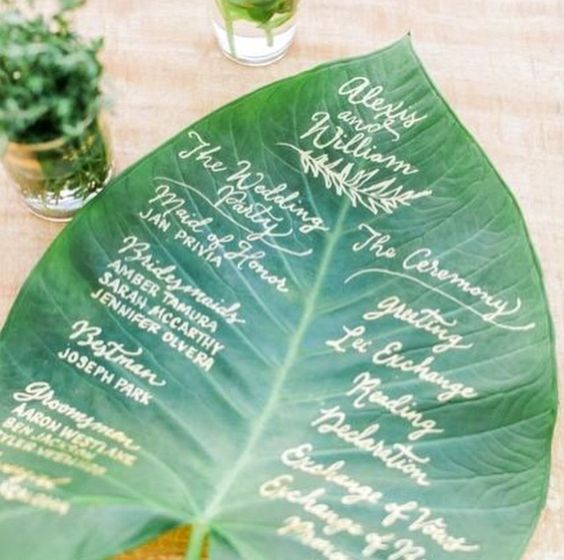 Alexis
and
William
The Wedding
Party
Maid of Honor
JAN PRIVIA
Bridesmaids
AMBER TAMURA
SARAH MCCARTHY
JENNIFER OLVERA
Bestman
JOSEPH PARK
Groomsmen
AARON WESTLAKE
BEN
The Ceremony
Greeting
Lei Exchange
Reading
Declaration
Exchange of Vows
Exchange of